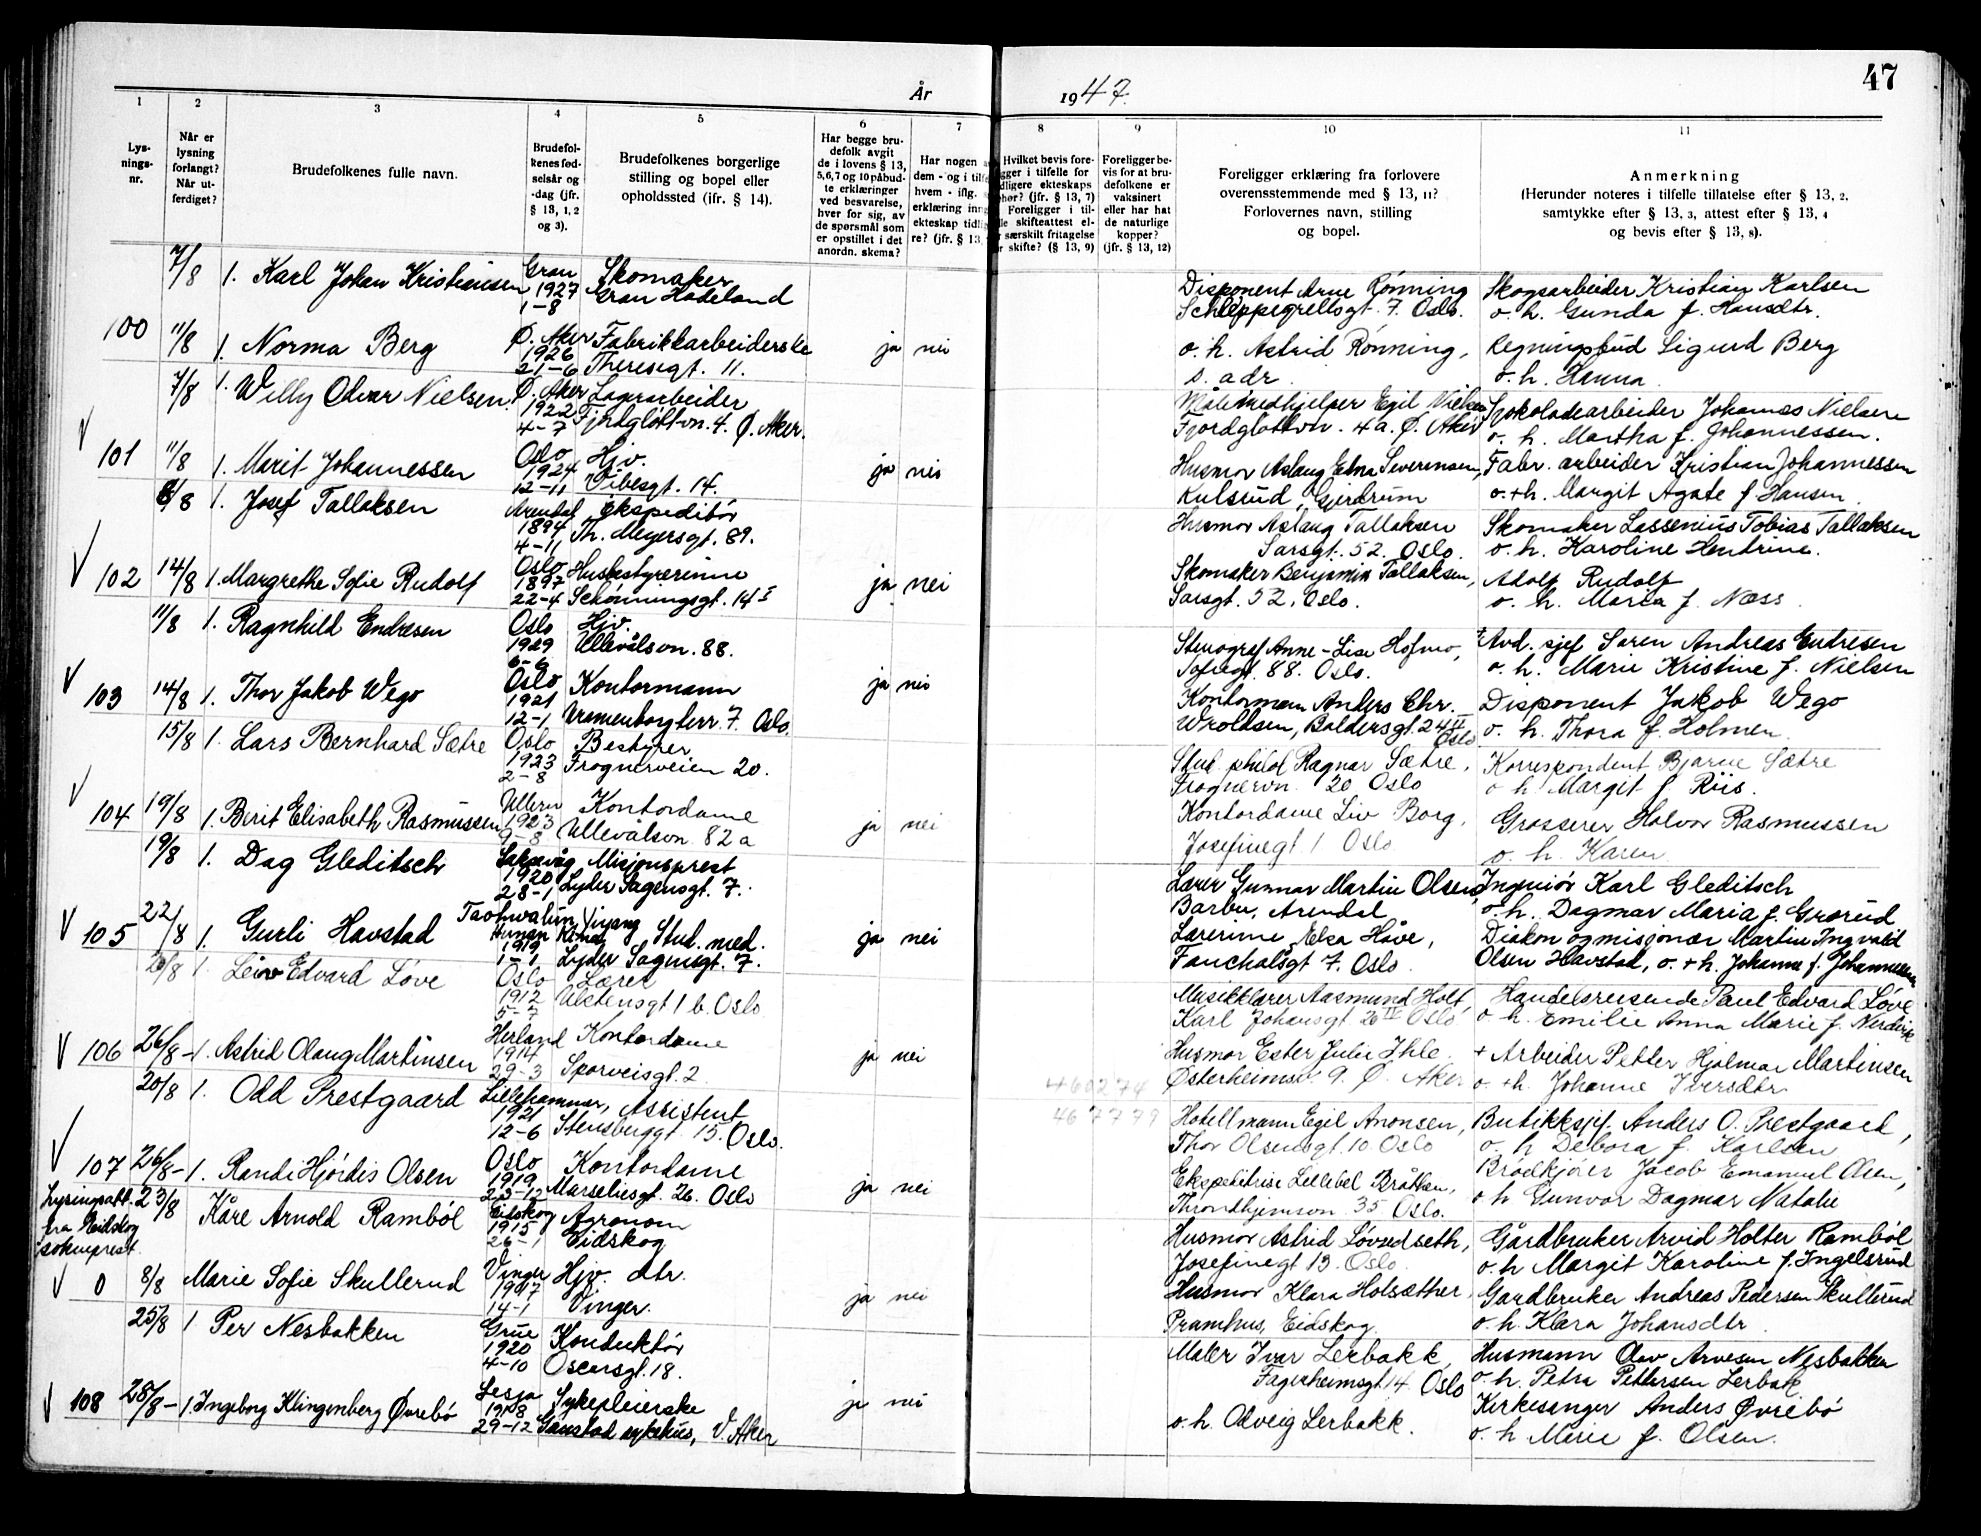 47
År 1947.
1 2 3 4 5 6 7 8 9 10 11
Lys-
nings-
nr.
Når er
lysning
forlangt?
Når ut-
ferdiget?
Brudefolkenes fulle navn.
Brudefol-
kenes fød-
selsår og
-dag (jfr.
§ 13, 1, 2
og 3).
Brudefolkenes borgerlige
stilling og bopel eller
opholdssted (ifr. § 14).
Har begge bru-
defolk avgit
de i lovens § 13,
5,6,7 og 10 påbud-
te erklæringer
ved besvarelse,
hver for sig, av
de spørsmål som
er opstillet i det
anordn. skema?
Har nogen a
dem - og i tilfe
hvem - iflg.
erklæring inng
ekteskap tidlig
re? (jfr. § 13,
Hvilket bevis fore-
gger i tilfelle for
dligere ekteskaps
phør? (jfr. § 13, 7)
Foreligger i til-
lle skifteattest el-
r særskilt fritagelse
r skifte? (§ 13, 9)
Foreligger be-
vis for at bru-
defolkene er
vaksinert
eller har hat
de naturlige
kopper?
(jfr. § 13, 12)
Foreligger erklæring fra forlovere
overensstemmende med § 13, 11?
Forlovernes navn, stilling
og bopel.
Anmerkning
(Herunder noteres i tilfelle tillatelse efter § 13, 2,
samtykke efter § 13, 3, attest efter § 13, 4
og bevis efter § 13, 8).
7/8 1. Karl Johan Kristiansen Gran 1927 1-8 Skomaker Gran Hadeland
Disponent Arne Rønning Schleppegrellsgt. 7. Oslo.
Skogsarbeider Kristian Karlsen o. h. Gunda f. Hansdtr.
100 11/8 1. Norma Berg Ø. Aker 1926 21-6 Fabrikkarbeiderske Theresegt. 11. ja nei
o. h. Astrid Rønning, s. adr.
Regningsbud Sigurd Berg o. h. Hanna
7/8 1. Willy Odvar Nielsen. Ø. Aker 1922 4-7 Lagerarbeider Fjordgløttvn. 4. Ø. Aker.
Målemedhjelper Egil Nielsen Fjordgløttvn. 4a. Ø. Aker
Sjokoladearbeider Johannes Nielsen o. h. Martha f. Johannessen.
101 11/8 1. Marit Johannessen Oslo 1924 12-11 Hjv. Vibesgt. 14. ja nei
Husmor Aslaug Edna Severinsen, Kulsrud, Gjerdrum
Fabr. arbeider Kristian Johannessen o. + h. Margit Agate f Hansen.
8/8 1. Josef Tallaksen Arendal 1894 4-11 Ekspeditør Th. Meyersgt. 89.
Husmor Aslaug Tallaksen Sarsgt. 52. Oslo.
Skomaker Lassenius Tobias Tallaksen o. h. Karoline Hendrine.
102 14/8 1. Margrethe Sofie Rudolf Oslo 1897 22-4 Husbestyrerinne Schønningsgt. 14 I ja nei
Skomaker Benjamin Tallaksen, Sarsgt. 52. Oslo.
Adolf Rudolf o. h. Maria f. Næss.
11/8 1. Ragnhild Endresen Oslo 1929 6-6 Hjv. Ullevålsvn. 88.
Stenograf Anne-Lise Hofmo, Sofiegt. 88. Oslo.
+ Avd. sjef Søren Andreas Endresen o. h. Marie Kristine f. Nielsen
103 14/8 1. Thor Jakob Wego Oslo 1921 12-1 Kontormann Uranienborgterr. 7. Oslo. ja nei
Kontormann Anders Chr. Wroldsen, Baldersgt. 24 Oslo
Disponent Jakob Wego o. h. Thora f. Holmen.
15/8 1. Lars Bernhard Sætre Oslo 1923 2-8 Bestyrer Frognerveien 20.
Stud. philol Ragnar Sætre, Frognervn. 20 Oslo
Korrespondent Bjarne Sætre o h Margit f. Riis.
104 19/8 1. Berit Elisabeth Rasmussen Ullern 1923 9-8 Kontordame Ullevålsvn 82 a ja nei
Kontordame Liv Borg, Josefinegt 1 Oslo
Grosserer Halvor Rasmussen o. h. Karen
19/8 1. Dag Gleditsch 1920 28-1 Misjonsprest Lyder Sagensgt. 7.
Lærer Gunnar Martin Olsen, Barbu, Arendal
Ingeniør Karl Gleditsch o. h. Dagmar Maria f. Grorud
105 22/8 1. Gurli Havstad Taohwalun Yiyang Hunan Kina 1919 1-1 Stud. med. Lyder Sagensgt. 7. ja nei
Lærerinne Elsa Høve, Fauchaldsgt 7. Oslo
Diakon og misjonær Martin Ingvald Olsen Havstad, o. + h. Johanne f. Johannessen
20/8 1. Leiv Edvard Løve Oslo 1912 5-7 Lærer Ulstensgt 1 b. Oslo
Musikklærer Aasmund Holt, Karl Johansgt 20 IV Oslo
Handelsreisende Paul Edvard Løve o h. Emilie Anna Marie f. Nerdvik
106 26/8 - 1. Astrid Olaug Martinsen Herland 1914 29-3 Kontordame Sporveisgt. 2 ja nei
Husmor Ester Julie Ihle. Østerheimsv. 9. Ø. Aker
+ Arbeider Petter Hjalmar Martinsen o. + h. Johanne Iversdtr
460274
467779
20/8 1. Odd Prestgaard Lillehammer, 1921 12-6 Assistent Stensberggt 15. Oslo.
Hotellmann Egil Aronsen, Thor Olsensgt. 10 Oslo
Butikksjef. Anders O. Prestgaard, o. h Debora f. Karlsen
107 26/8 - 1. Randi Hjørdis Olsen Oslo 1919 23-12 Kontordame Marseliesgt. 26. Oslo ja nei
Ekspeditrise Lillebel Bråthen, Throndhjemsvn 35 Oslo.
Brødkjører Jacob Emanuel Olsen, o h Gunvor Dagmar Natalie
Lysingsatt. fra Eidskog sokneprest.
23/8 Kåre Arnold Rambøl Eidskog 1915 26-1 Agronom Eidskog
Husmor Astrid Løvsedseth, Josefinegt 13. Oslo.
Gårdbruker Arvid Holter Rambøl o. h Margit Karoline f. Ingelsrud
0 8/8 Marie Sofie Skullerud Vinger 1917 14-1 Hjv. dtr. Vinger. ja nei
Husmor Klara Holsæther, Pramhus, Eidskog
Gardbruker Andreas Pedersen Skullerud o. h. Klara Johansdtr.
25/8 1 Per Nesbakken Grue 1920 4-10 Konduktør Oscarsgt. 18.
Maler Ivar Lerbakk Fagerheimsgt 14. Oslo
Husmann Olav Arvesen Nesbakken o. h. Petra Pettersen Lerbak
108 28/8 - 1 Ingeborg Klingenberg Øvrebø Lesja 1918 29-12 Sykepleierske Gaustad sykehus, V. Aker ja nei
o. h. Odveig Lerbakk.
Kirkesanger Anders Øvrebø o. h Marie f. Olsen.